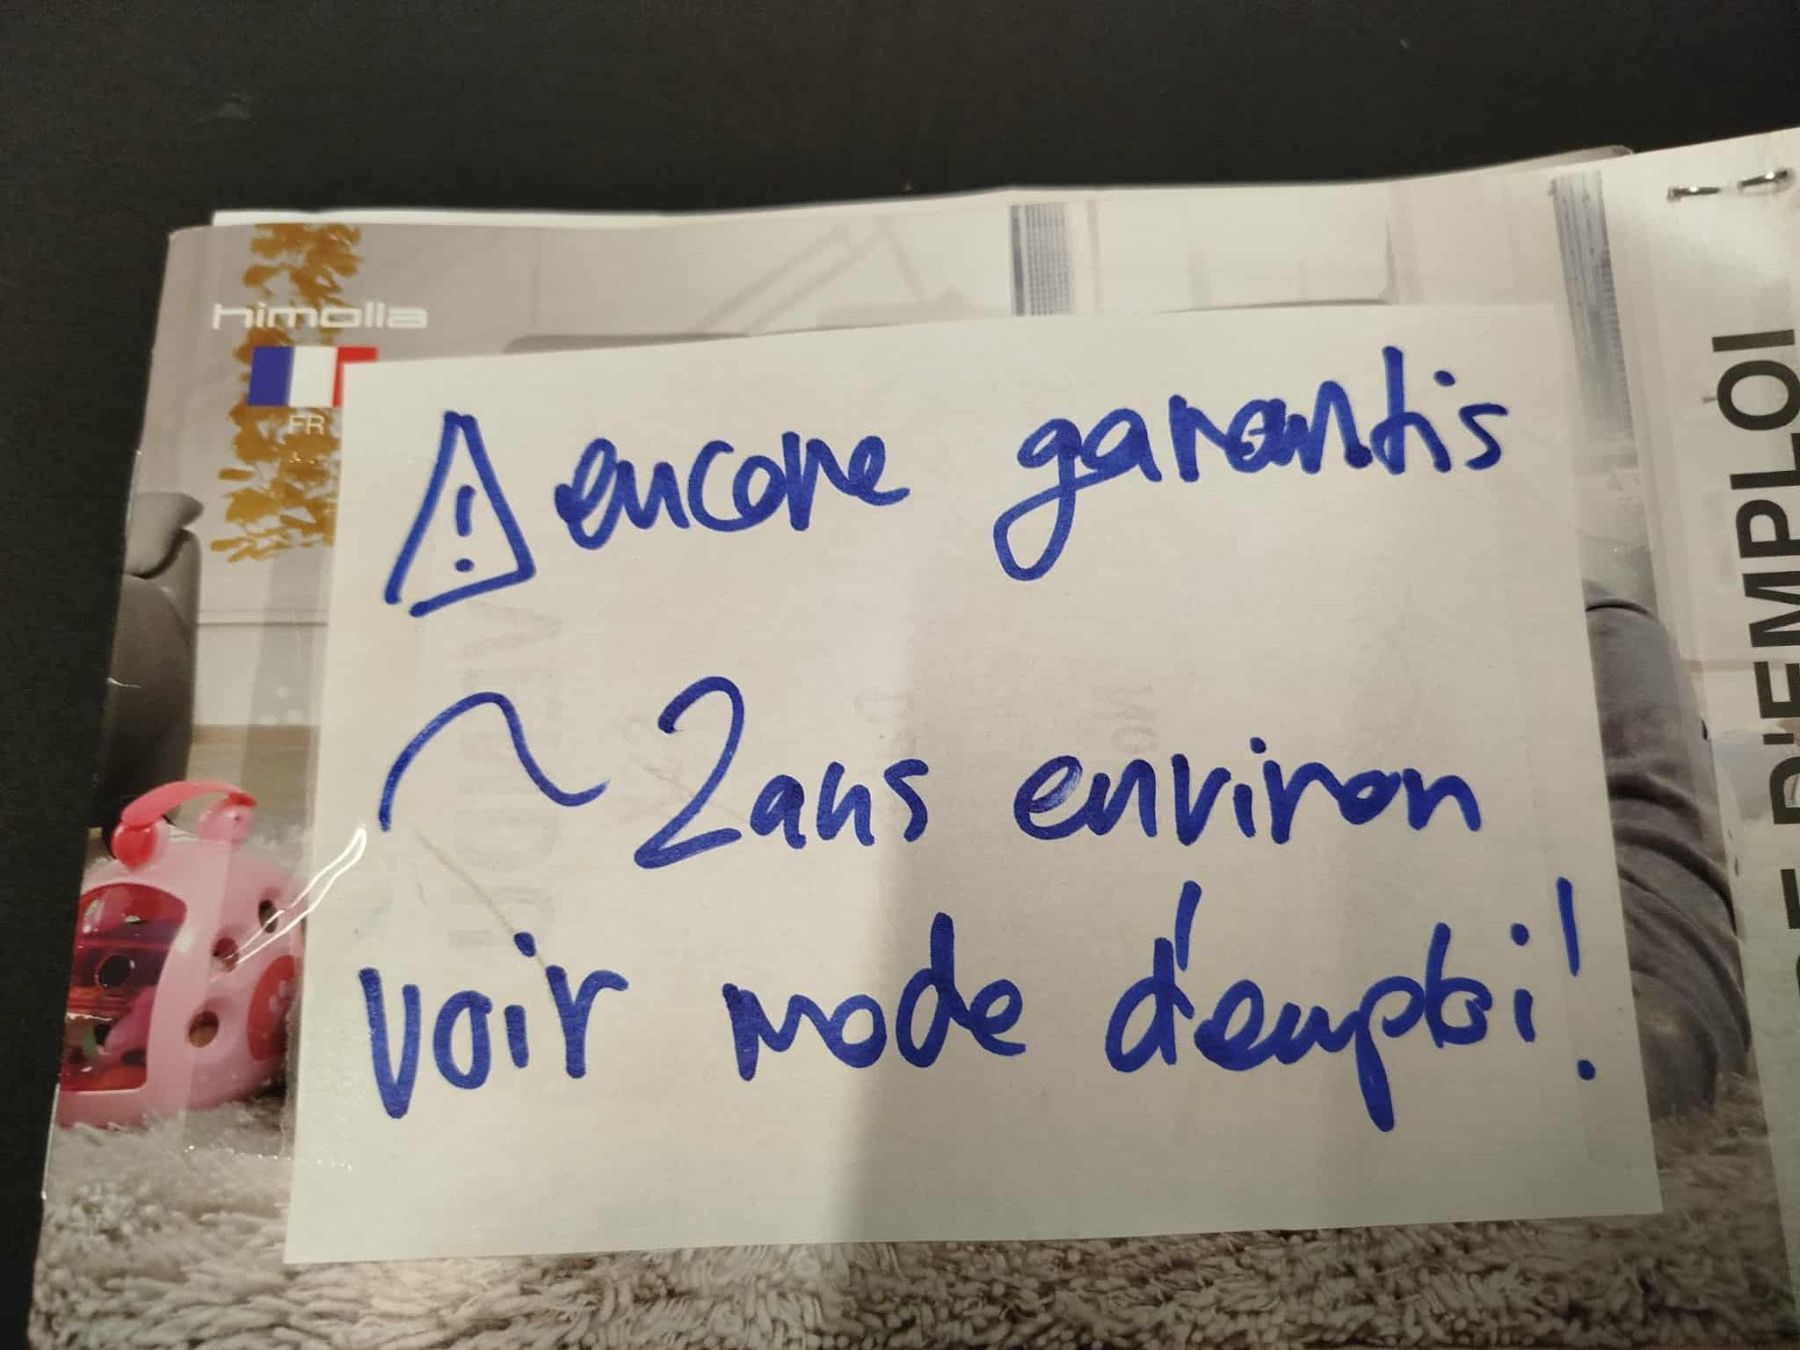 himolla
FR
⚠ encore garantis
~ 2 ans environ
voir mode d'emploi!
D'EMPLOI